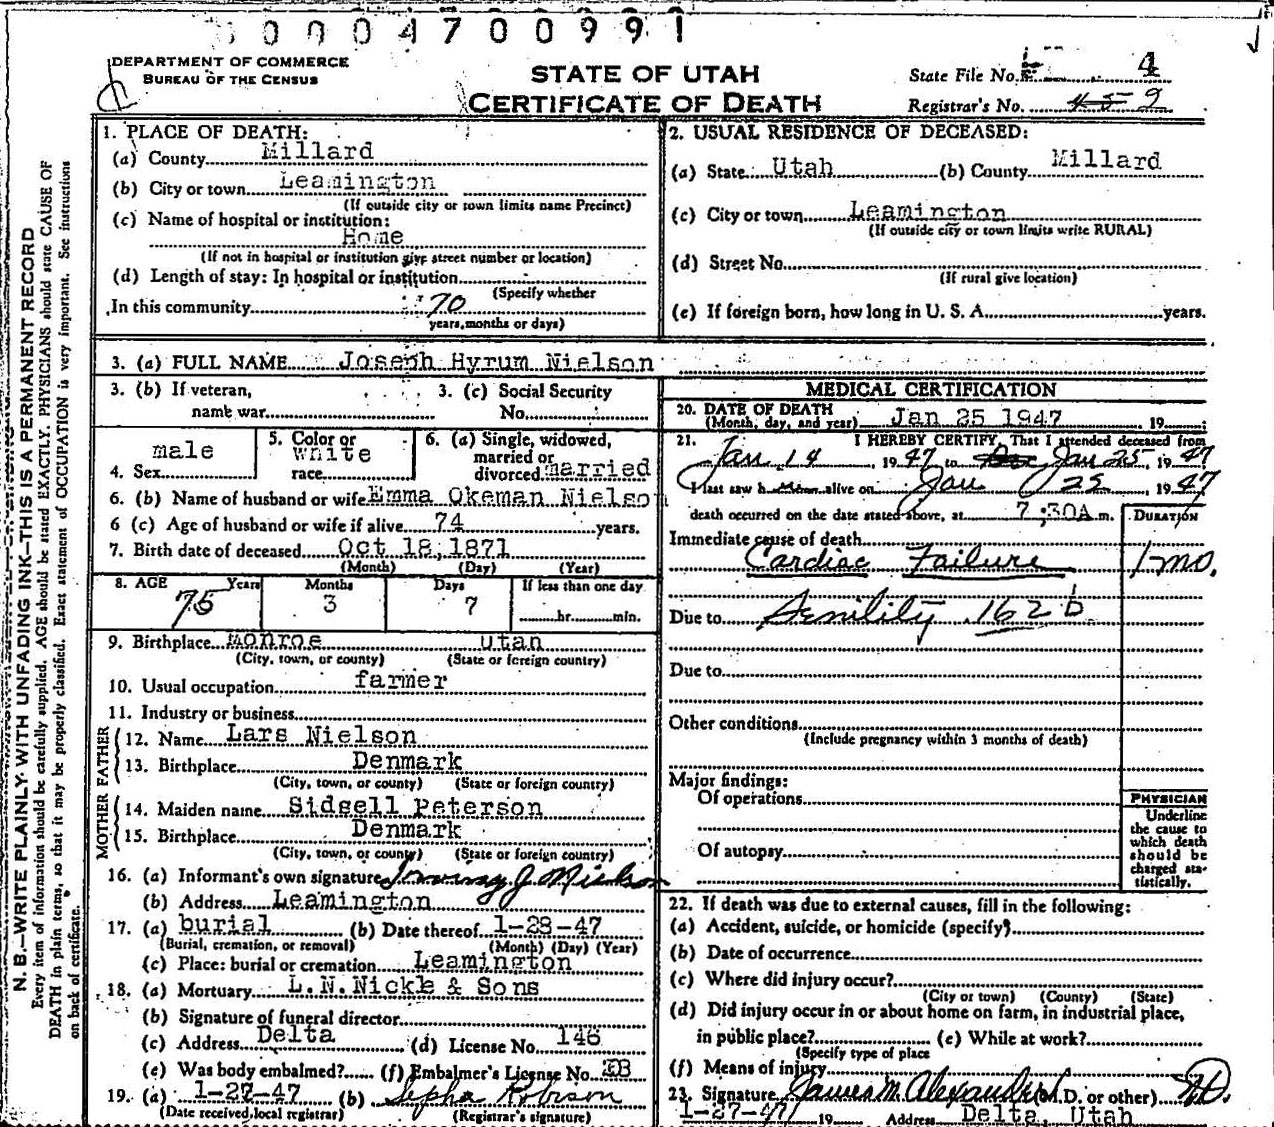 0004700991
DEPARTMENT OF COMMERCE
BUREAU OF THE CENSUS
STATE OF UTAH
CERTIFICATE OF DEATH
State File No. 4
Registrar's No. 459
N. B.—WRITE PLAINLY WITH UNFADING INK—THIS IS A PERMANENT RECORD
Every item of information should be carefully supplied. AGE should be stated EXACTLY. PHYSICIANS should state CAUSE OF
DEATH in plain terms, so that it may be properly classified. Exact statement of OCCUPATION is very important. See instructions
on back of certificate.
1. PLACE OF DEATH:
(a) County Millard
(b) City or town Leamington
(If outside city or town limits name Precinct)
(c) Name of hospital or institution:
Home
(If not in hospital or institution give street number or location)
(d) Length of stay: In hospital or institution
(Specify whether
In this community 70
years, months or days)
2. USUAL RESIDENCE OF DECEASED:
(a) State Utah (b) County Millard
(c) City or town Leamington
(If outside city or town limits write RURAL)
(d) Street No.
(If rural give location)
(e) If foreign born, how long in U. S. A. years.
3. (a) FULL NAME Joseph Hyrum Nielson
3. (b) If veteran, name war 3. (c) Social Security No.
4. Sex male 5. Color or race white 6. (a) Single, widowed, married or divorced married
6. (b) Name of husband or wife Emma Okeman Nielson
6 (c) Age of husband or wife if alive 74 years.
7. Birth date of deceased Oct 18, 1871
(Month) (Day) (Year)
8. AGE Years Months Days If less than one day
75 3 7 hr. min.
9. Birthplace Monroe Utah
(City, town, or county) (State or foreign country)
10. Usual occupation farmer
11. Industry or business
FATHER
12. Name Lars Nielson
13. Birthplace Denmark
(City, town, or county) (State or foreign country)
MOTHER
14. Maiden name Sidsell Peterson
15. Birthplace Denmark
(City, town, or county) (State or foreign country)
16. (a) Informant's own signature Irving J Nielson
(b) Address Leamington
17. (a) burial (b) Date thereof 1-28-47
(Burial, cremation, or removal) (Month) (Day) (Year)
(c) Place: burial or cremation Leamington
18. (a) Mortuary L.N.Nickle & Sons
(b) Signature of funeral director
(c) Address Delta (d) License No. 146
(e) Was body embalmed? (f) Embalmer's License No.
19. (a) 1-27-47 (b) Sepha Robison
(Date received, local registrar) (Registrar's signature)
MEDICAL CERTIFICATION
20. DATE OF DEATH
(Month, day, and year) Jan 25 1947 19
21. I HEREBY CERTIFY, That I attended deceased from
Jan 14, 1947 to Dec Jan 25, 1947
I last saw h alive on Jan 25 1947
death occurred on the date stated above, at 7:30A m.
DURATION
Immediate cause of death
Cardiac Failure 1 mo.
Due to Senility 162 b
Due to
Other conditions
(Include pregnancy within 3 months of death)
Major findings:
Of operations
Of autopsy
PHYSICIAN
Underline
the cause to
which death
should be
charged sta-
tistically.
22. If death was due to external causes, fill in the following:
(a) Accident, suicide, or homicide (specify)
(b) Date of occurrence
(c) Where did injury occur?
(City or town) (County) (State)
(d) Did injury occur in or about home on farm, in industrial place,
in public place? (e) While at work?
(Specify type of place
(f) Means of injury
23. Signature James M. Alexander (M.D. or other) M.D.
1-27-47 19 Address Delta, Utah